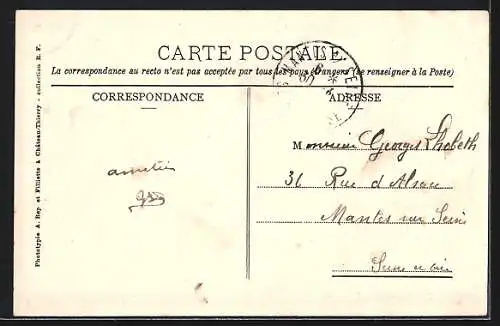 CARTE POSTALE
La correspondance au recto n'est pas acceptée par tous les pays étrangers (se renseigner à la Poste)
CORRESPONDANCE
ADRESSE
Phototypie A. Rep. et Filliette à Château-Thierry - collection R. F.
amitiés
Monsieur Georges
36 Rue d'Alsace
Mantes sur Seine
Seine et Oise